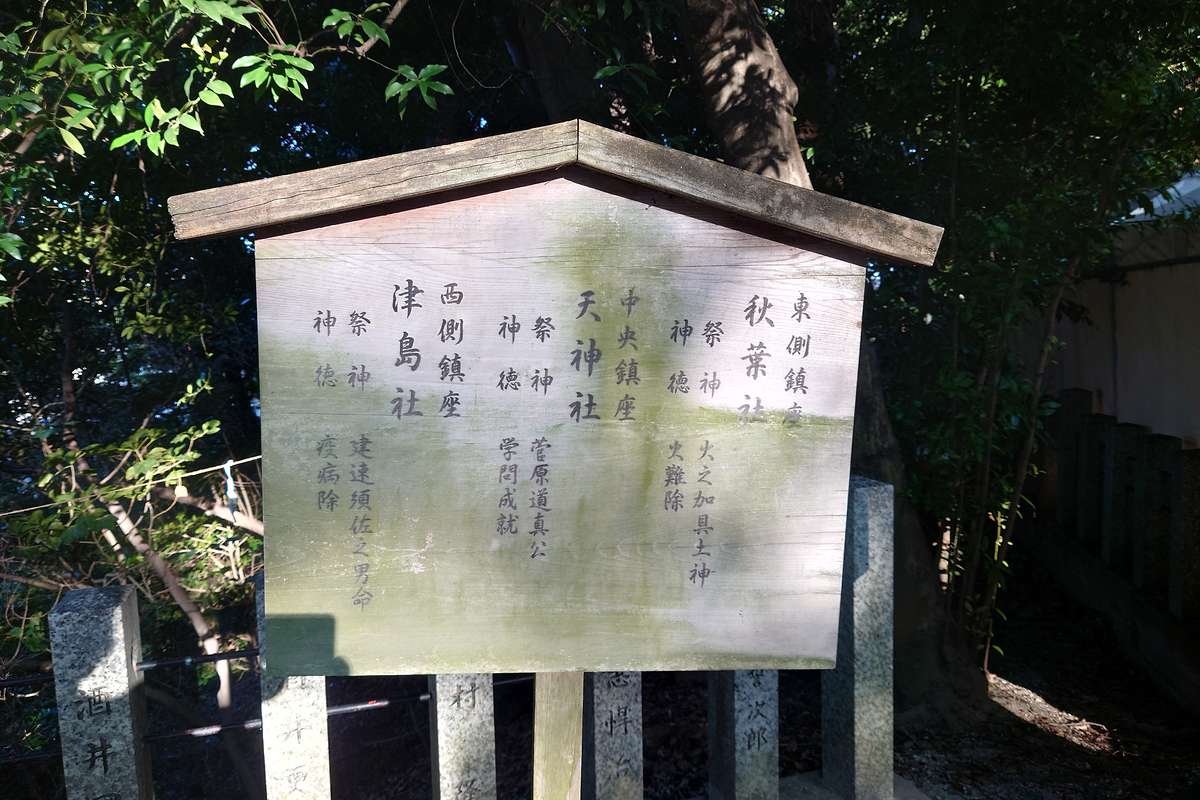 東側鎮座
秋葉社
祭神 火之加具土神
神徳 火難除
中央鎮座
天神社
祭神 菅原道真公
神徳 学問成就
西側鎮座
津島社
祭神 建速須佐之男命
神徳 疫病除
次郎
悍治
村
井
酒井